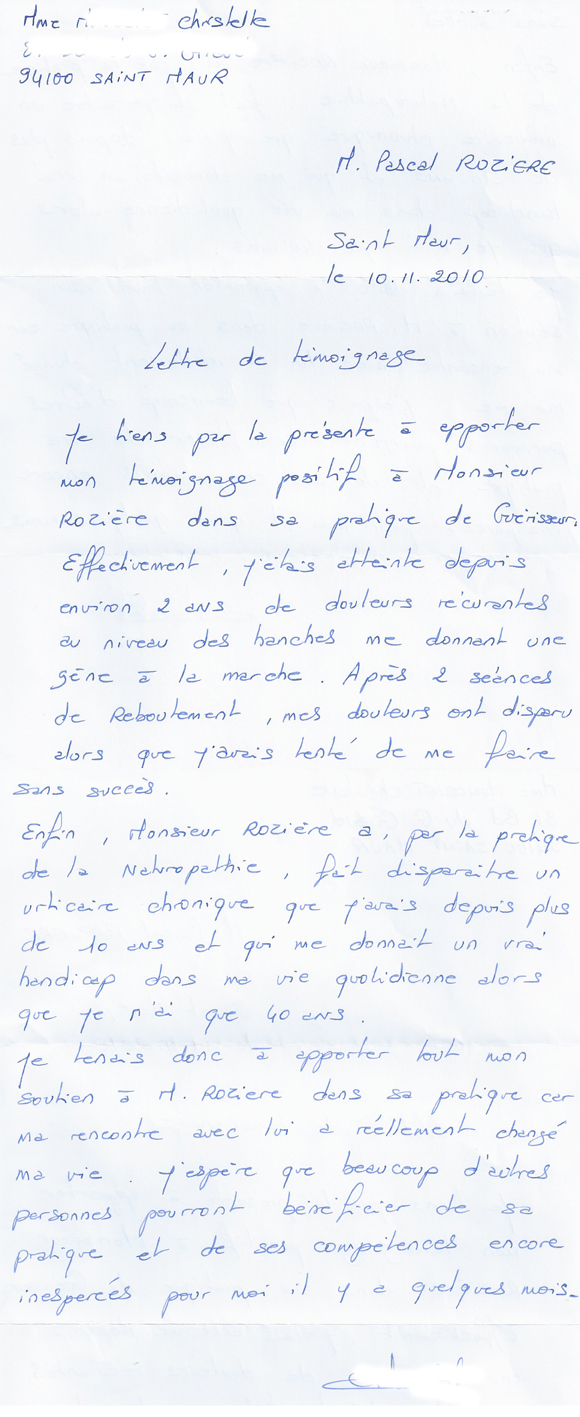 Mme Christelle
94100 SAINT MAUR
M. Pascal ROZIERE
Saint Maur,
le 10.11.2010
Lettre de témoignage
Je tiens par la présente à apporter
mon témoignage positif à Monsieur
ROZIÈRE dans sa pratique de Guérisseur.
Effectivement, j'étais atteinte depuis
environ 2 ans de douleurs récurantes
au niveau des hanches me donnant une
gêne à la marche. Après 2 séances
de Reboutement, mes douleurs ont disparu
alors que j'avais tenté de me faire
sans succès.
Enfin, Monsieur ROZIÈRE a, par la pratique
de la Naturopathie, fait disparaître un
urticaire chronique que j'avais depuis plus
de 10 ans et qui me donnait un vrai
handicap dans ma vie quotidienne alors
que je n'ai que 40 ans.
Je tenais donc à apporter tout mon
soutien à M. ROZIERE dans sa pratique car
ma rencontre avec lui a réellement changé
ma vie. J'espère que beaucoup d'autres
personnes pourront bénéficier de sa
pratique et de ses compétences encore
inesperées pour moi il y a quelques mois.